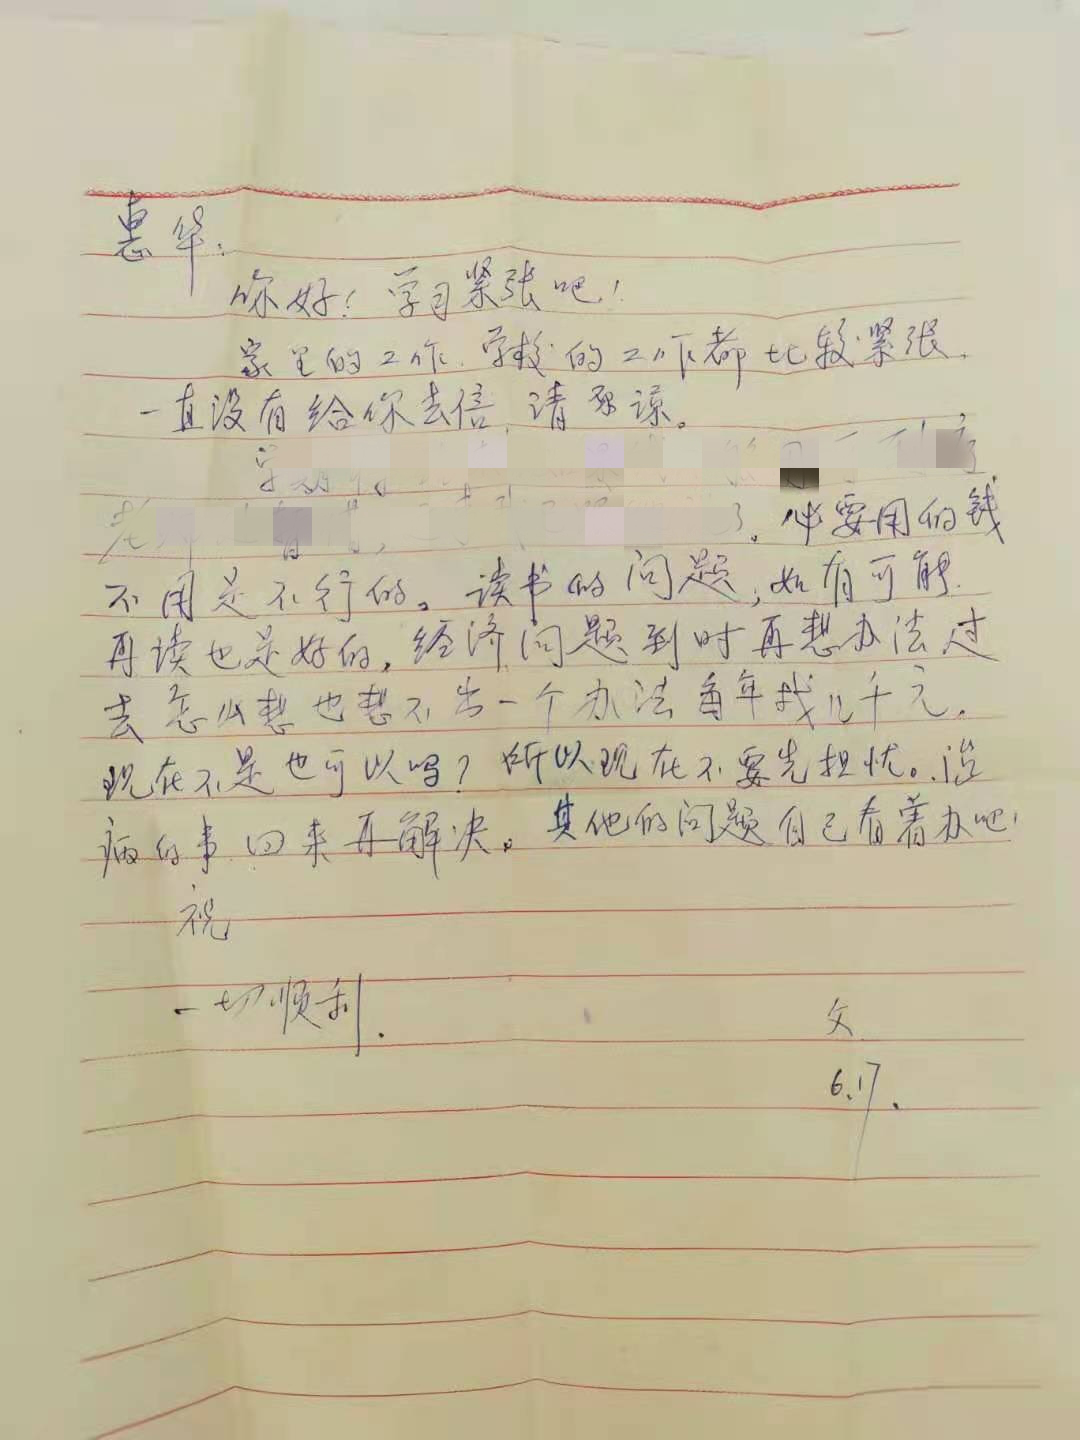 惠华:
你好！学习紧张吧！
家里的工作.学校的工作都比较紧张.
一直没有给你去信,请原谅。
学期
。必要用的钱
不用是不行的。读书的问题,如有可能.
再读也是好的,经济问题到时再想办法过
去怎么想也想不出一个办法每年找几千元.
现在不是也可以吗?所以现在不要先担忧。治
病的事.回来再解决。其他的问题自己看着办吧!
祝
一切顺利.
文.
6.17.